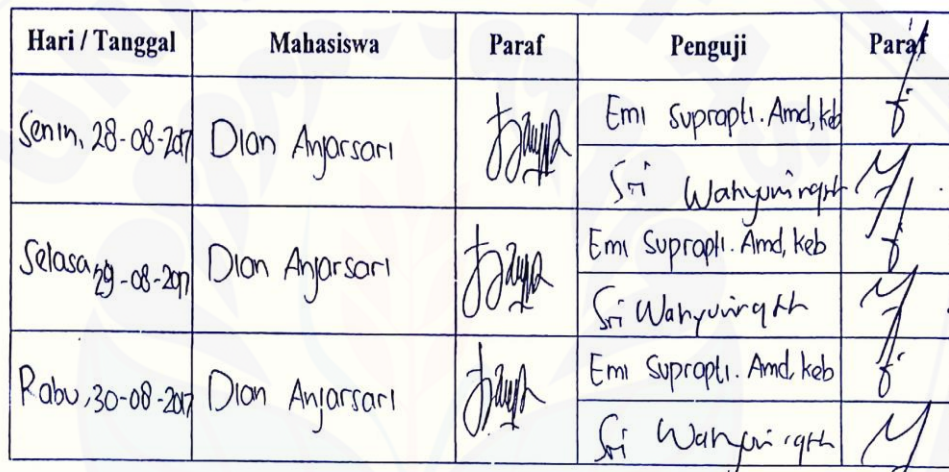 Hari / Tanggal Mahasiswa Paraf Penguji Paraf
Senin, 28-08-2017 Dian Anjarsari Emi Suprapti. Amd, keb
Sri Wahyuningsih
Selasa, 29-08-2017 Dian Anjarsari Emi Suprapti. Amd, keb
Sri Wahyuningsih
Rabu, 30-08-2017 Dian Anjarsari Emi Suprapti. Amd, keb
Sri Wahyuningsih